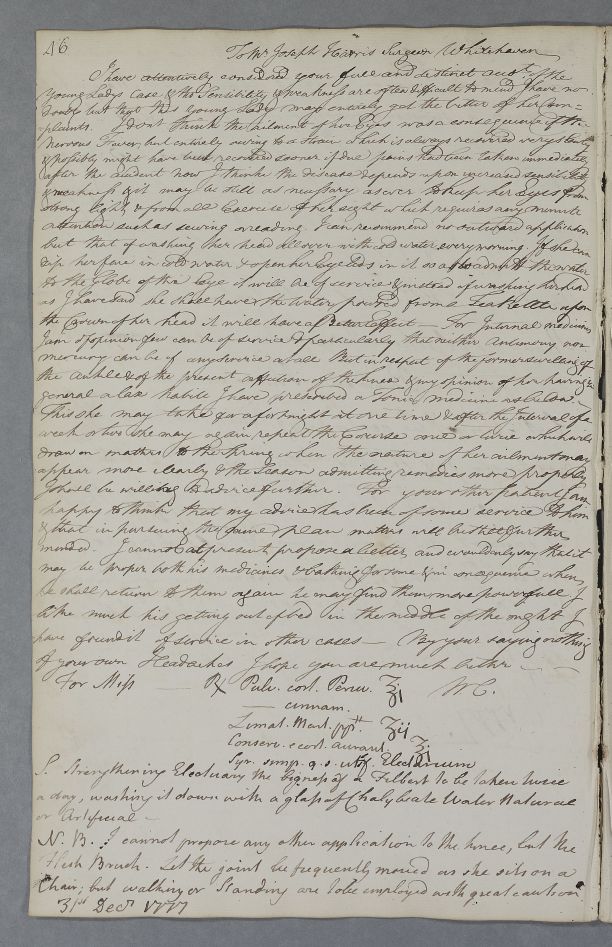 46
To Mr Joseph Harris Surgeon Whitehaven
I have attentively considered your full and distinct acct of the
Young Ladys Case & tho Sensibility & Weakness are often difficult to mend I have no
doubt but that this young Lady may entirely get the better of her com-
plaints. I dont think the ailment of her Eyes was a consequence of the
Nervous Fever, but entirely owing to a Strain which is always recovered very slowly
& possibly might have been recovered sooner if due pains had been taken immediately
after the accident now I think the disease depends upon increased sensibility
& weakness & it may be still as necessary as ever to keep her eyes from
strong light & from all Exercise of her sight which requires any minute
attention such as sewing or reading. I can recommend no outward application
but that of washing her head all over with cold water every morning. If she can
dip her face in cold water & open her Eye lids in it so as to admit the water
to the Globe of the Eye it will be of service & instead of washing her head
as I have said she shall have the Water poured from a Tea Kettle upon
the Crown of her head it will have a better effect — For Internal medicines
I am of opinion few can be of service & particularly that neither Antimony nor
mercury can be of any service at all But in respect of the former swelling of
the Ankle & of the present affection of the knee & my opinion of her having in
general a lax habit I have prescribed a Tonic medicine as below.
This she may take for a fortnight at one time & after the Interval of a
week or two she may again repeat the Course once or twice which will
draw on matters to the Spring when the nature of her ailment may
appear more clearly & the Season admitting remedies more properly
I shall be willing to advise further. For your other patient I am
happy to think that my advice has been of some service to him
& that in pursuing the same plan matters will be still further
mended. I cannot at present propose a better, and would only say that it
may be proper both his medicines & bathing for some & in consequence when
he shall return to them again he may find them more powerfull I
like much his getting out of bed in the middle of the night I
have found it of service in other cases — By your saying nothing
of your own Headaches I hope you are much better —
For Miss — ℞ Pulv. cort. Peruv. ℥i W C.
— cinnam.
Limat. Mart. ppt. ʒii
Conserv. e cort. aurant. ℥i
Syr. simp. q. s. ut f. Electarium
S. Strengthening Electuary the bigness of a Filbert to be taken twice
a day, washing it down with a glass of Chalybeate Water Natural
or Artificial —
N. B. I cannot propose any other application to the knee, but the
Flesh Brush. Let the joint be frequently moved as she sits on a
Chair; but walking or Standing are to be employed with great caution
31st Decr 1777